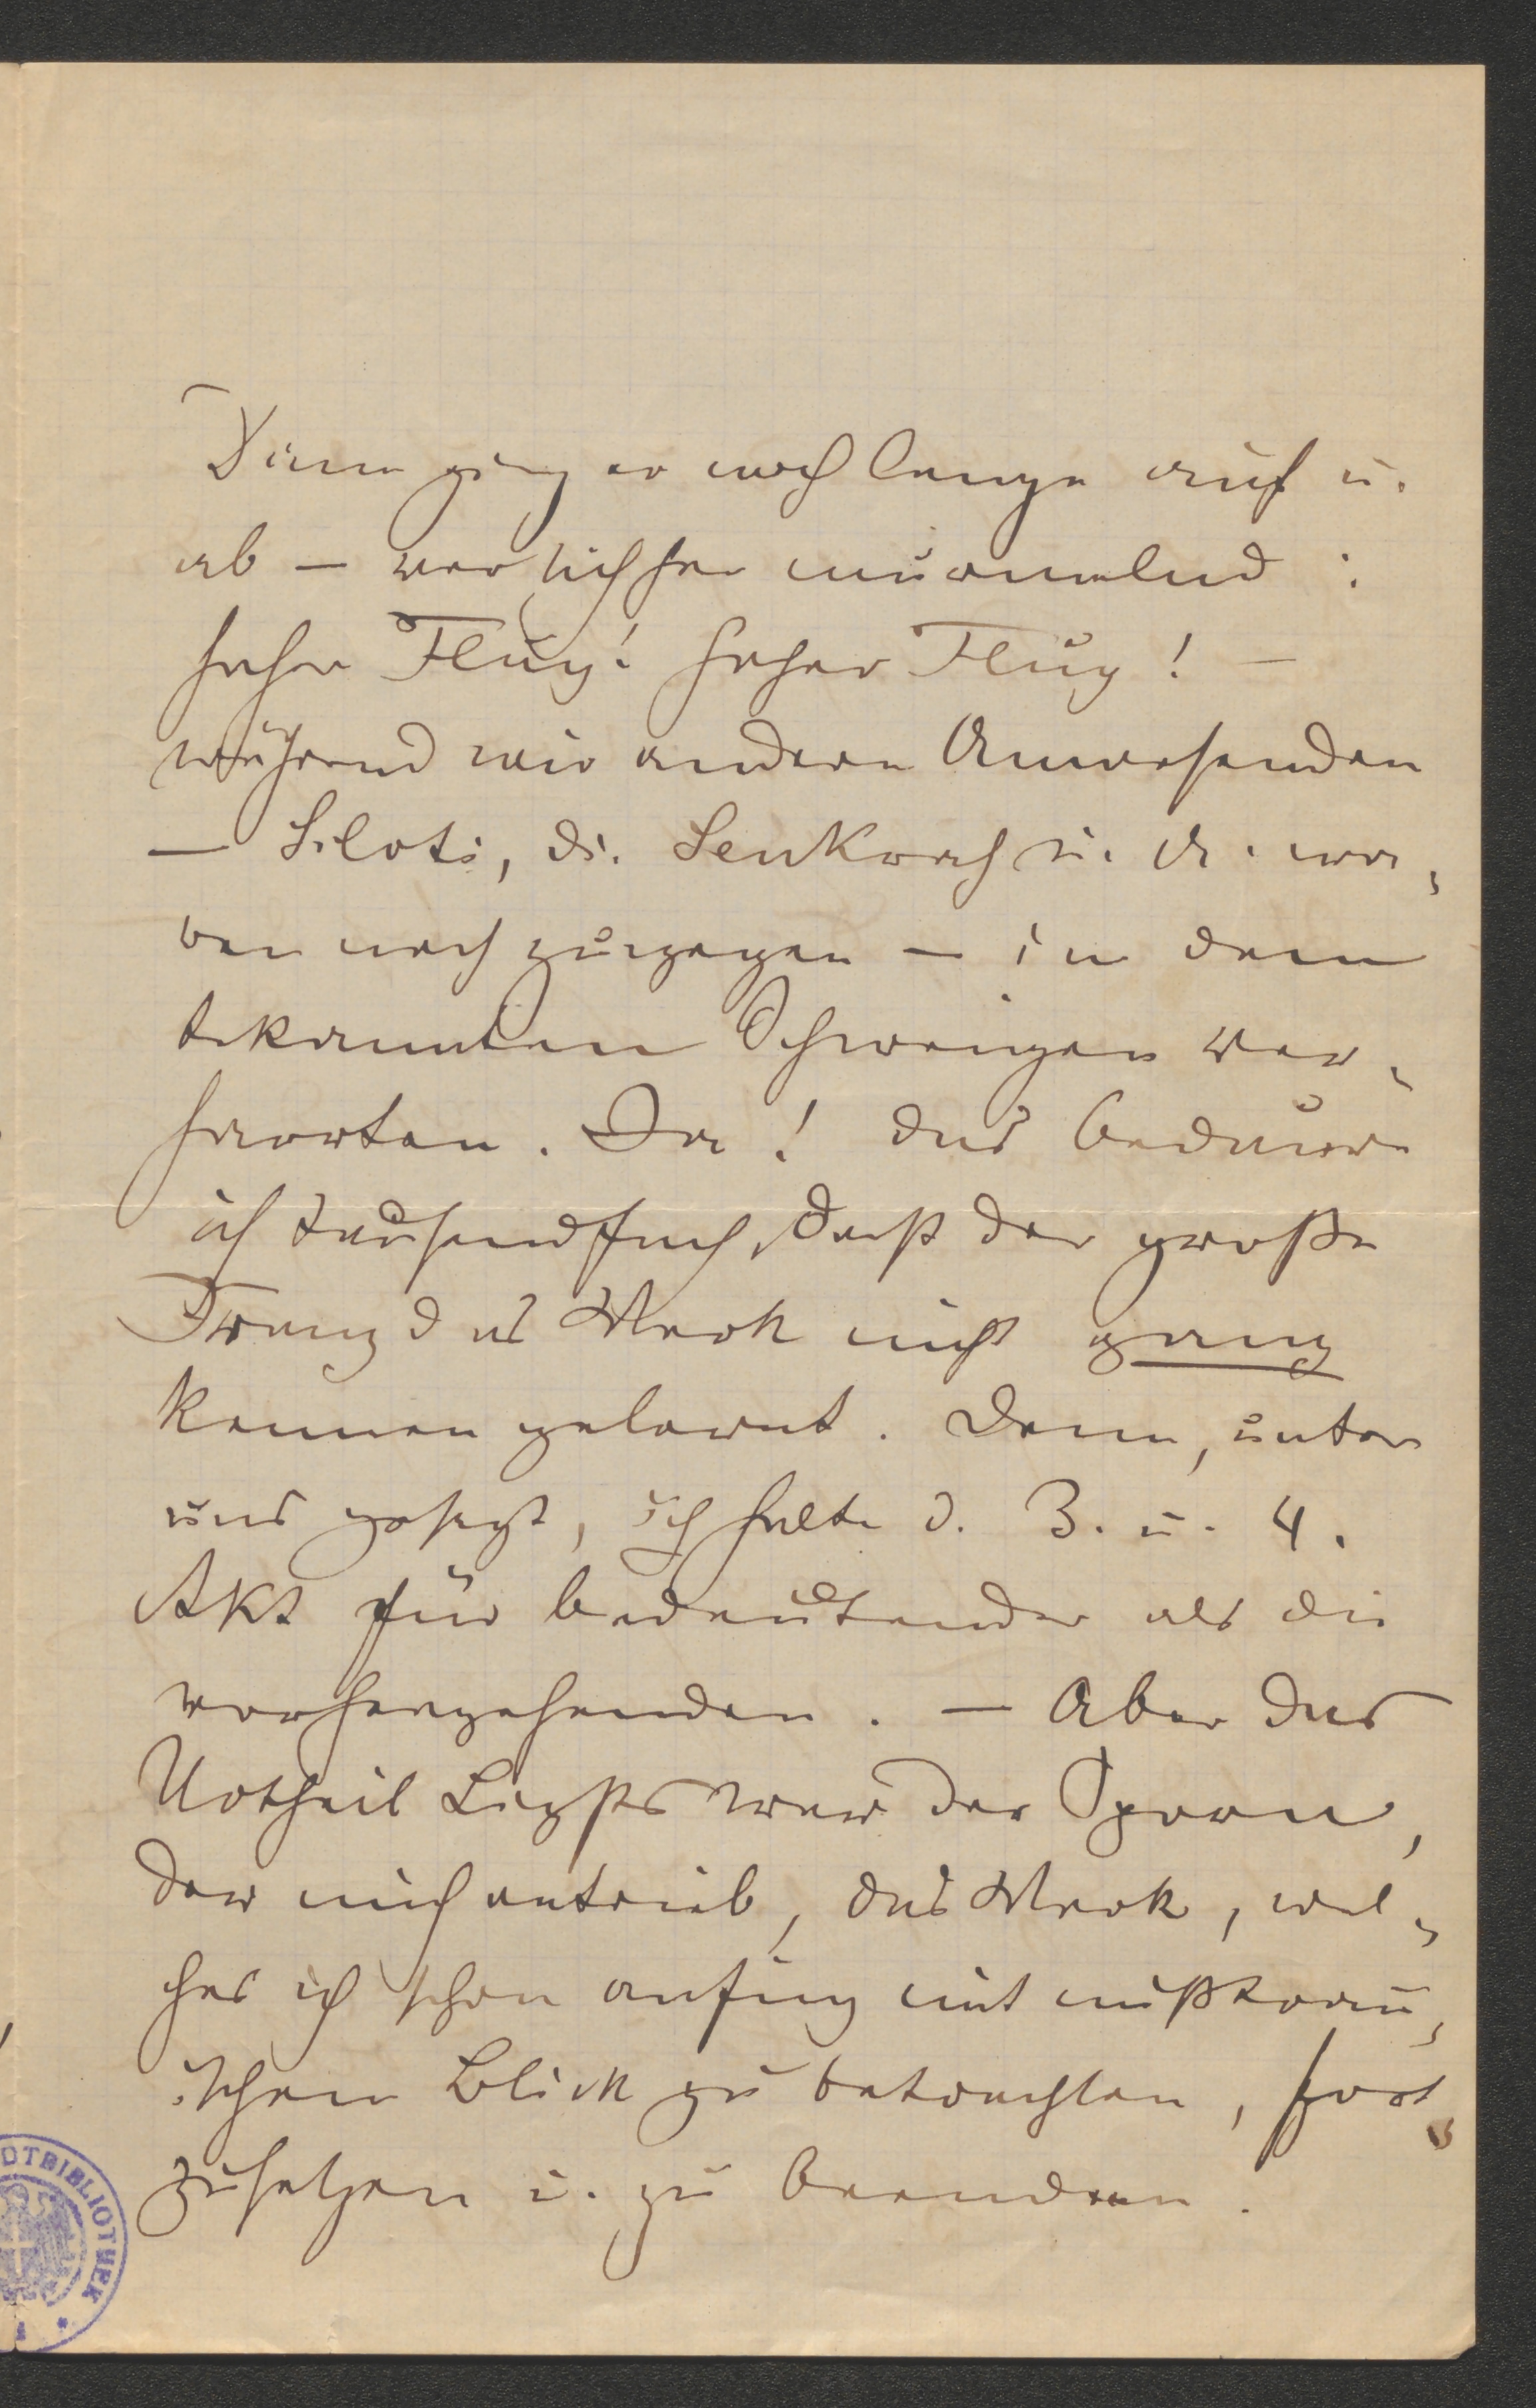 Dann ging er noch lange auf u.
ab – vor sich her murmelnd :
hoher Flug! hoher Flug! –
während wir andern Anwesenden
– Siloti, di. Senkrah u. A. wa-
ren noch zugegen – in dem
bekannten Schweigen ver-
harrten. Da! das bedaure
ich tausendfach, daß der große
Franz das Werk nicht ganz
kennen gelernt. Denn, unter
uns gesagt, ich halte d. 3. u. 4.
Akt für bedeutender als die
vorhergehenden. – Aber das
Urtheil Liszts war der Sporn,
der mich antrieb, das Werk, wel-
ches ich schon anfing mit mißtraui-
ischem Blick zu betrachten, fort
zusetzen u. zu beenden.
DTBIBLIOTHEK